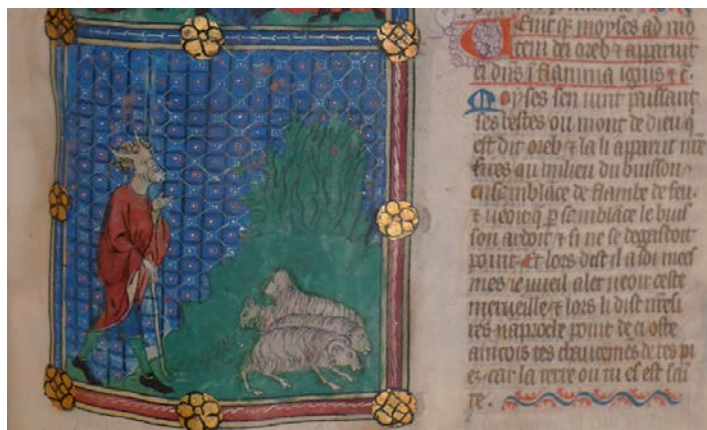 Ueint q̃ moyses ad mo
tem dei oreb ⁊ apparuit
ei dn̄s ĩ flamma ignis ⁊ c̃.
Moyses sen uint paissant
ses bestes ou mont de dieu q̃
est dit oreb ⁊ la li apparut nr̃e
sires ou milieu du buisson.
en semblãce de flambe de feu.
⁊ ueoit q̃ p semblãce le buis
son ardoit ⁊ si ne se degastoit
point. Et lors dist il a soi mees
mes ie vueil aler ueoir ceste
merueille ⁊ lors li dist nr̃e si
res naproche point de ci oste
aincois tes chaucemẽs de tes pi
ez. car la terre ou tu es est saĩ
te.